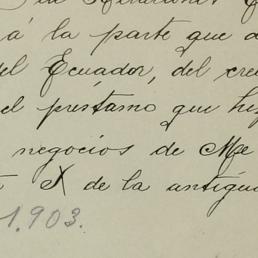 á la parte que
del Ecuador, del
el préstamo que
negocios de Me
X de la antigua
1.903.